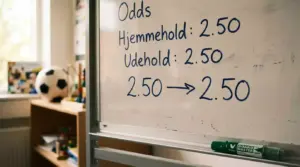 Odds
Hjemmehold: 2.50
Udehold: 2.50
2.50 → 2.50